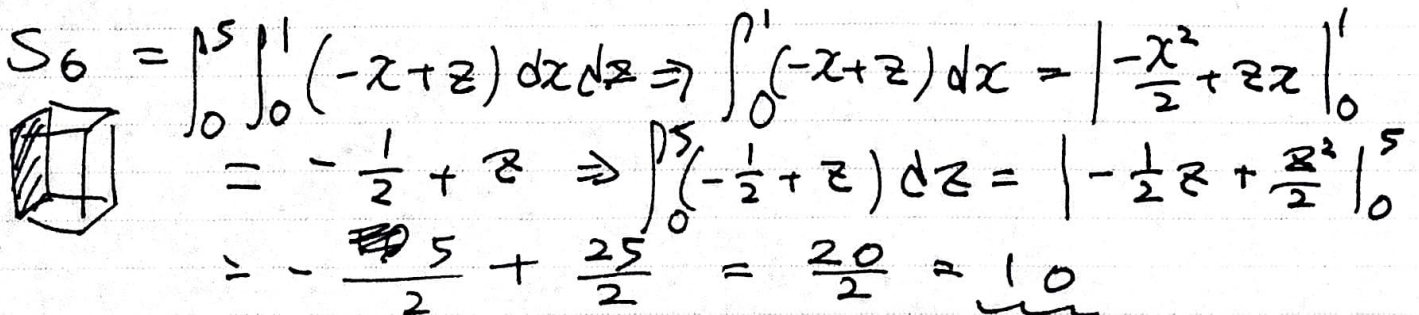 S₆ = ∫₀⁵ ∫₀¹ (-x+z) dx dz ⇒ ∫₀¹ (-x+z) dx = |-x²/2 + zx|₀¹
= - 1/2 + z ⇒ ∫₀⁵ (-1/2 + z) dz = |-1/2 z + z²/2|₀⁵
= - 5/2 + 25/2 = 20/2 = 10